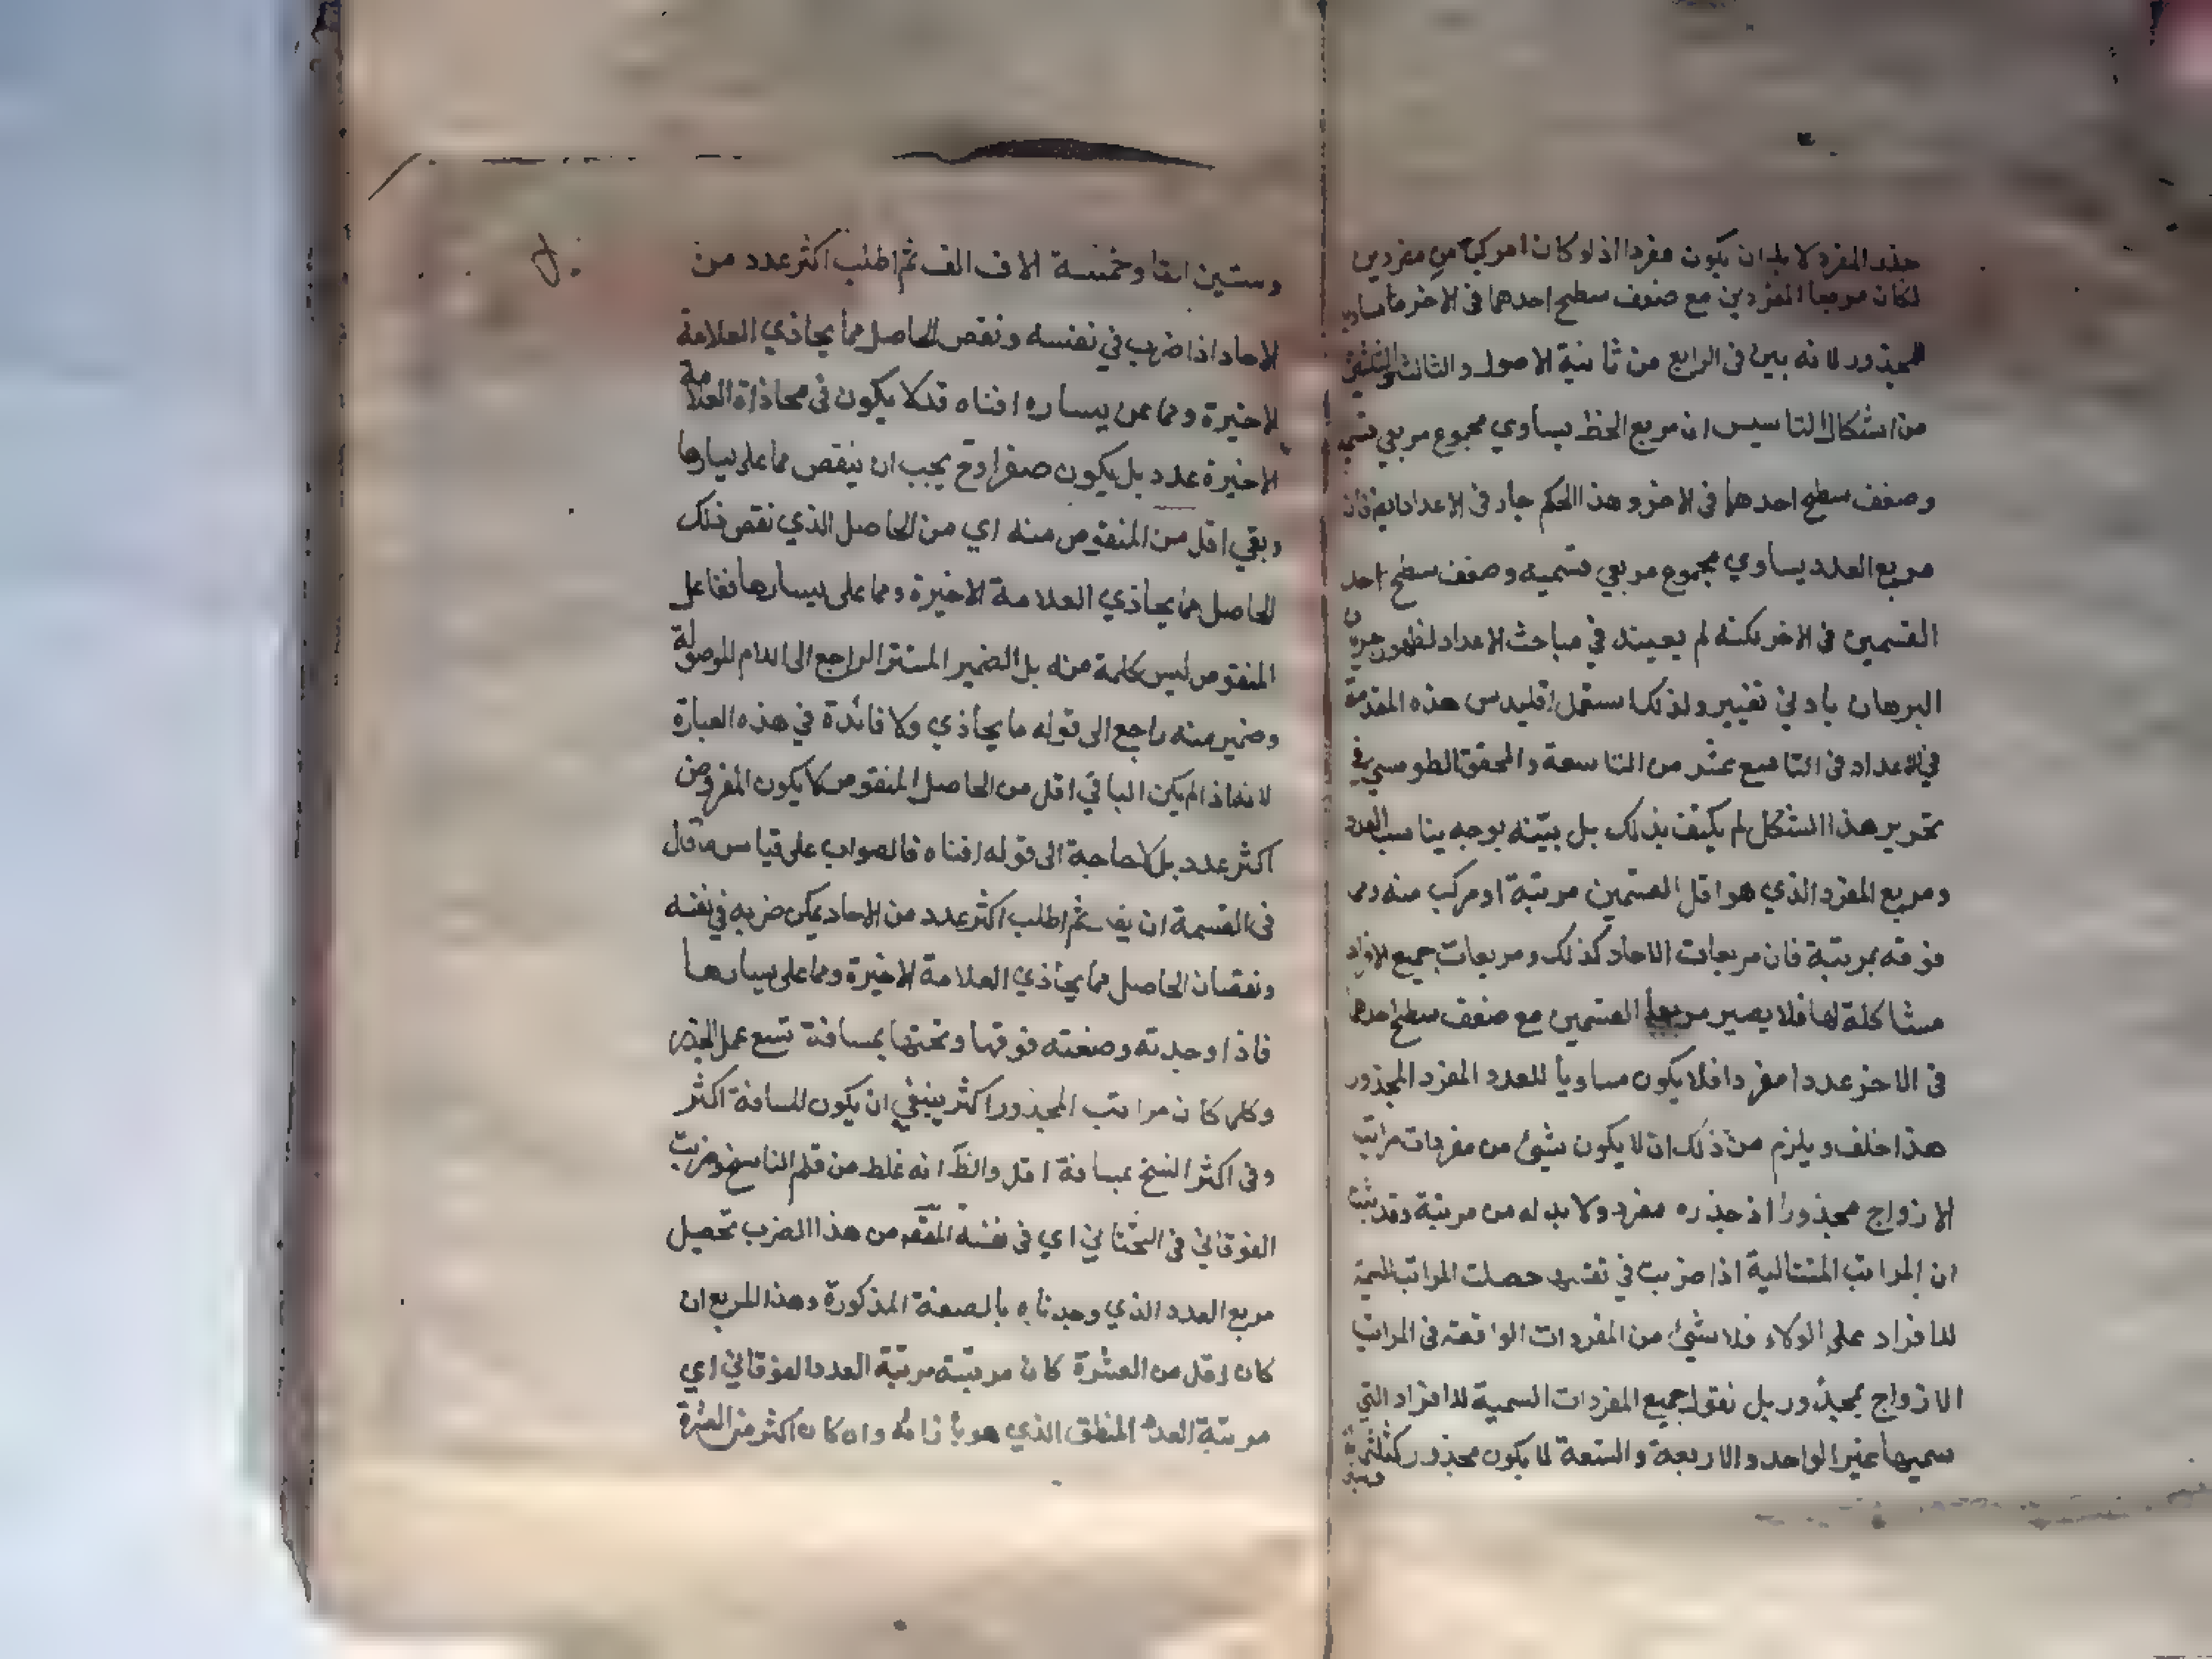 جذر المفرد لا بد ان يكون مفردا اذ لو كان مركبا من مفردين
لكان مربعا المفردين مع ضعف سطح احدهما في الاخر مساويا
للمجذور لانه بين في الرابع من ثانية الاصول والثالث والثلثين
من اشكال التاسيس ان مربع الخط يساوي مجموع مربعي قسميه
وضعف سطح احدهما في الاخر وهذا الحكم جار في الاعداد ايضا فان
مربع العدد يساوي مجموع مربعي قسميه وضعف سطح احد
القسمين في الاخر لكنه لم يبينه في مباحث الاعداد لظهور جريان
البرهان بادنى تغيير ولذلك استعمل اقليدس هذه المقدمة
في الاعداد في التاسع عشر من التاسعة والمحقق الطوسي في
تحرير هذا الشكل لم يكتف بذلك بل بينه بوجه يناسب العدد
ومربع المفرد الذي هو اقل القسمين مرتبة او مركب منه ومما
فوقه بمرتبة فان مربعات الاحاد كذلك ومربعات جميع الافراد
مشاكلة لها فلا يصير مربعا القسمين مع ضعف سطح احدهما
في الاخر عددا مفردا فلا يكون مساويا للعدد المفرد المجذور
هذا خلف ويلزم من ذلك ان لا يكون شيئ من مفردات مراتب
الازواج مجذورا اذ جذره مفرد ولا بد له من مرتبة وقد ثبت
ان المراتب المتتالية اذا ضربت في نفسها حصلت المراتب السمية
للافراد على الولاء فلا شيئ من المفردات الواقعة في المراتب
الازواج بمجذور بل نقول جميع المفردات السمية للافراد التي
سميها غير الواحد والاربعة والتسعة لا يكون مجذورا كثلثمائة
وستين الفا وخمسة الاف الف ثم اطلب اكثر عدد من
الاحاد اذا ضرب في نفسه ونقص الحاصل مما يحاذي العلامة
الاخيرة ومما عن يساره افناه قد لا يكون في محاذاة العلامة
الاخيرة عدد بل يكون صفرا وح يجب ان ينقص مما على يسارها
وبقي اقل من المنقوص منه اي من الحاصل الذي نقص ذلك
الحاصل مما يحاذي العلامة الاخيرة ومما على يسارها ففاعل
المنقوص ليس كلمة منه بل الضمير المستتر الراجع الى اللام الموصولة
وضمير منه راجع الى قوله ما يحاذي ولا فائدة في هذه العبارة
لانه اذا لم يكن الباقي اقل من الحاصل المنقوص لا يكون المفروض
اكثر عدد بل لا حاجة الى قوله افناه فالصواب على قياس ما قال
في القسمة ان يق ثم اطلب اكثر عدد من الاحاد يمكن ضربه في نفسه
ونقصان الحاصل مما يحاذي العلامة الاخيرة ومما على يسارها
فاذا وجدته وضعته فوقها وتحتها بمسافة تسع عمل الجذر
وكلما كان مراتب المجذور اكثر ينبغي ان يكون المسافة اكثر
وفي اكثر النسخ بمسافة اقل والظ انه غلط من قلم الناسخ وضربت
الفوقاني في التحتاني اي في نفسه المقصد من هذا الضرب تحصيل
مربع العدد الذي وجدناه بالصفة المذكورة وهذا المربع ان
كان اقل من العشرة كان مرتبته مرتبة العدد الفوقاني اي
مرتبة العدد المنطق الذي هو بازائه وان كان اكثر من العشرة